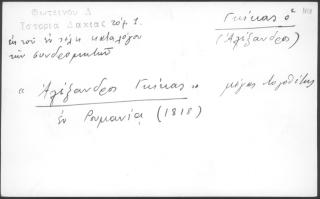 Φωτεινού Δ
Ιστορία Δακίας τόμ 1.
εκ του εν τέλει καταλόγου
των συνδρομητών
Γκίκας ο
(Αλέξανδρος)
" Αλέξανδρος Γκίκας " μέγας λογοθέτης
εν Ρουμανία (1818)